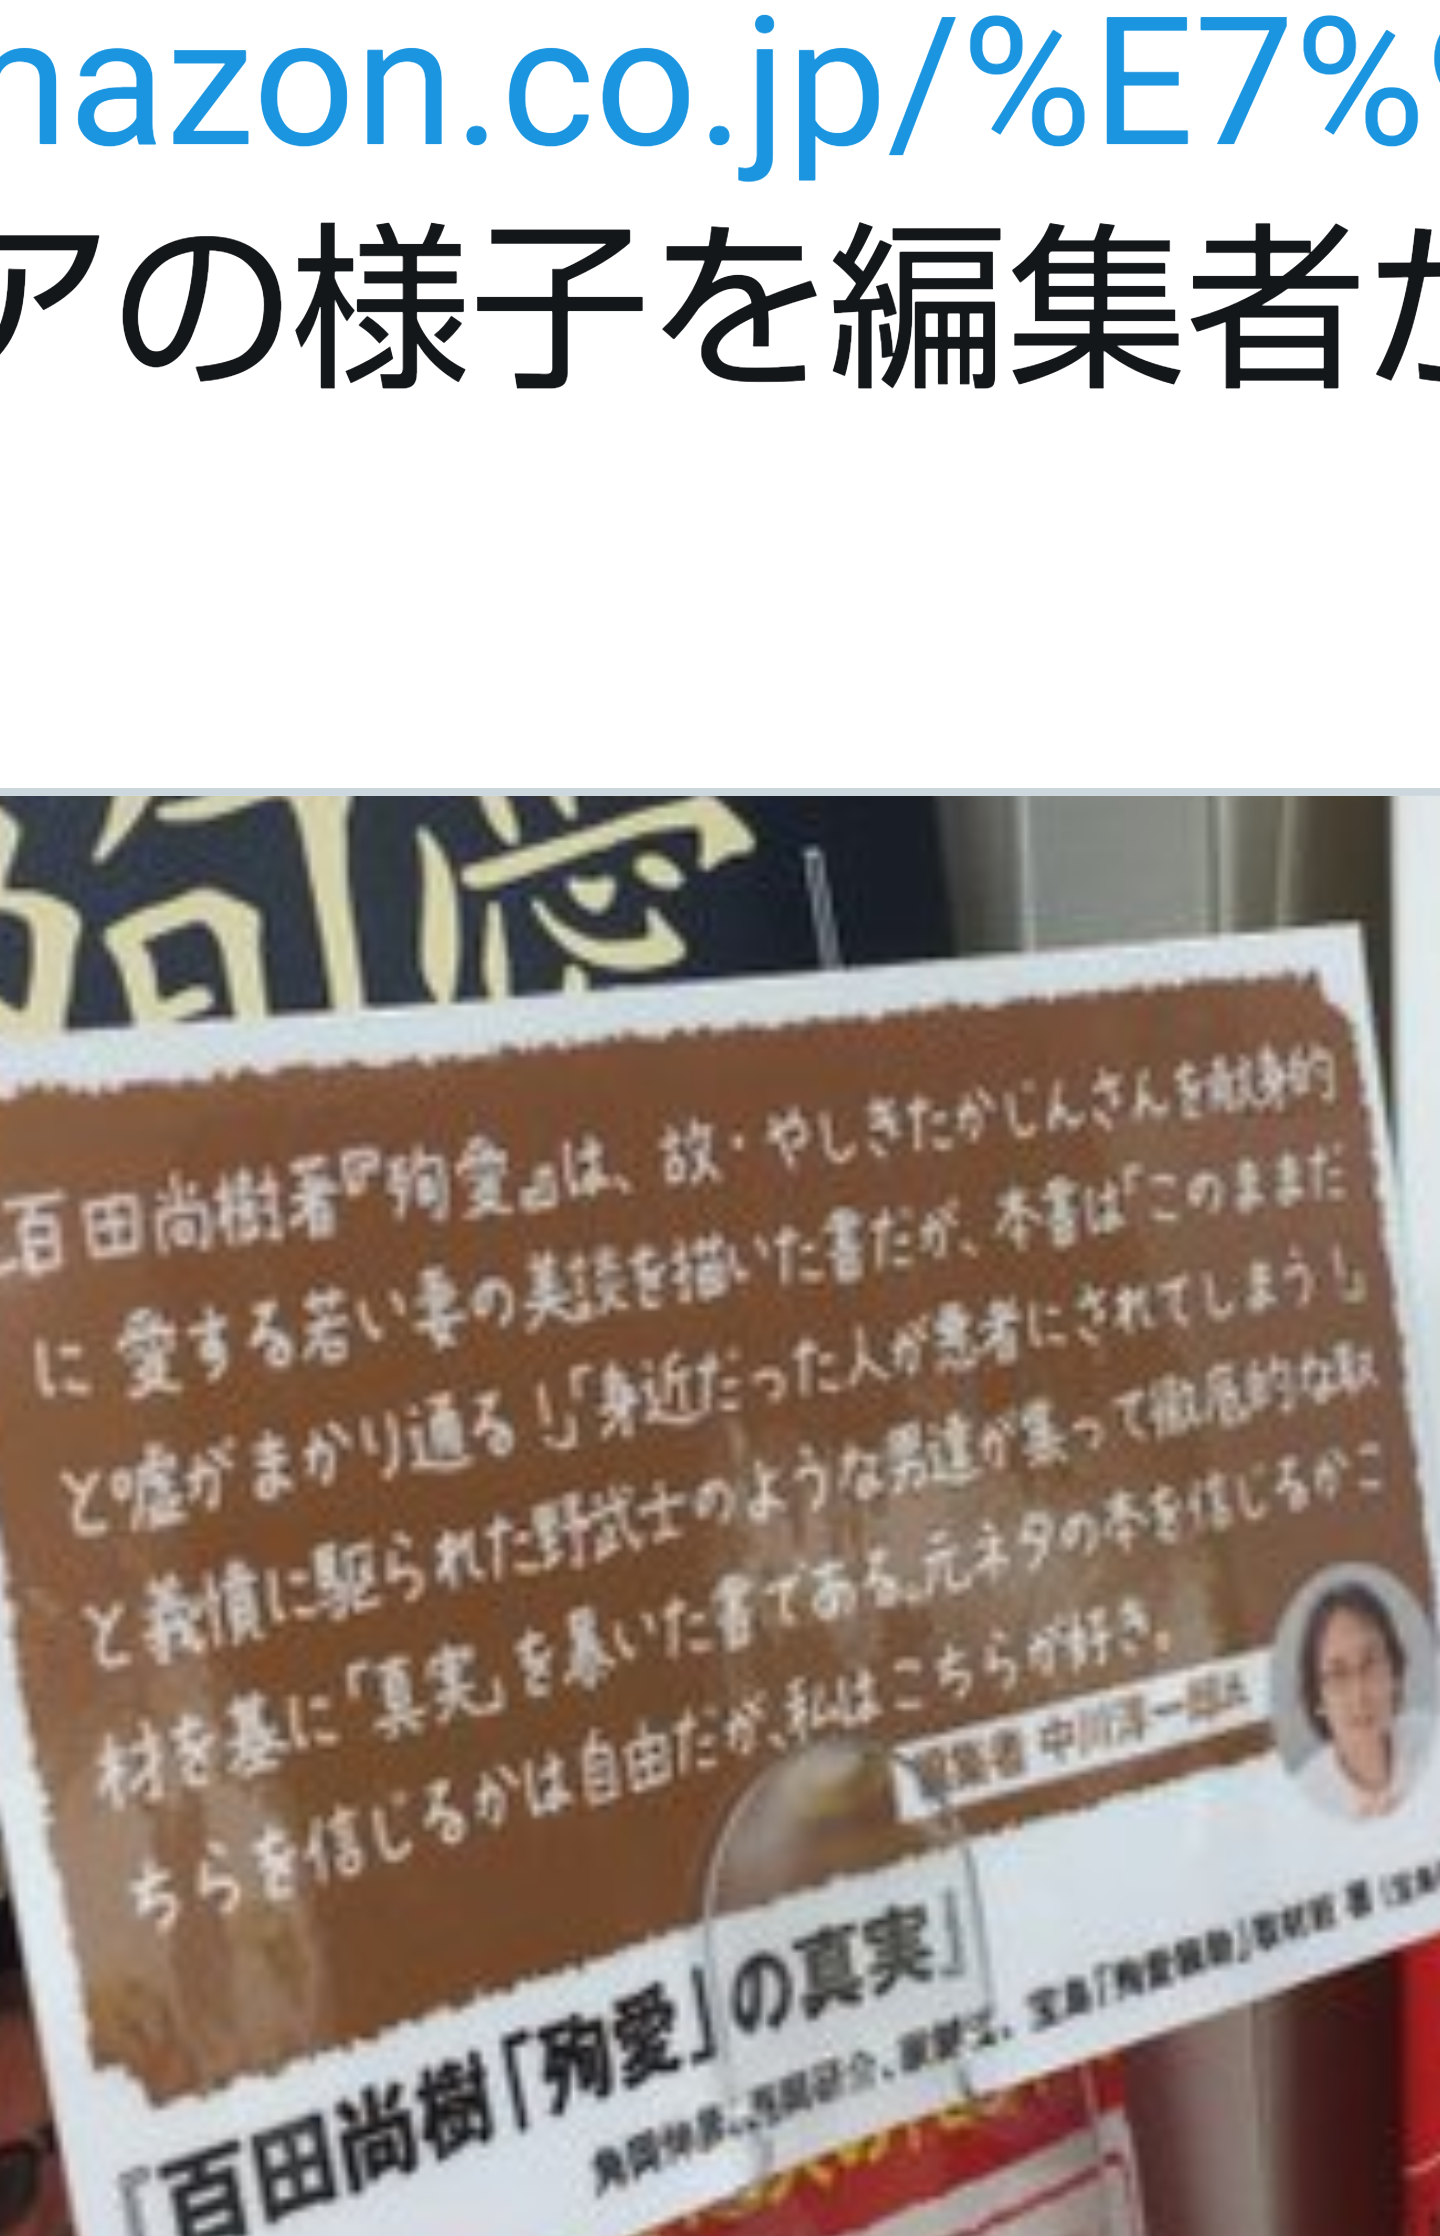 mazon.co.jp/%E7%
アの様子を編集者が
殉愛
百田尚樹著『殉愛』は、故・やしきたかじんさんを献身的
に愛する若い妻の美談を描いた書だが、本書は「このままだ
と嘘がまかり通る!」「身近だった人が悪者にされてしまう!」
と義憤に駆られた野武士のような男達が集って徹底的な取
材を基に「真実」を暴いた書である。元ネタの本を信じるかこ
ちらを信じるかは自由だが、私はこちらが好き。
編集者 中川淳一郎氏
『百田尚樹「殉愛」の真実』
角岡伸彦、西岡研介、 宝島「殉愛騒動」取材班 著